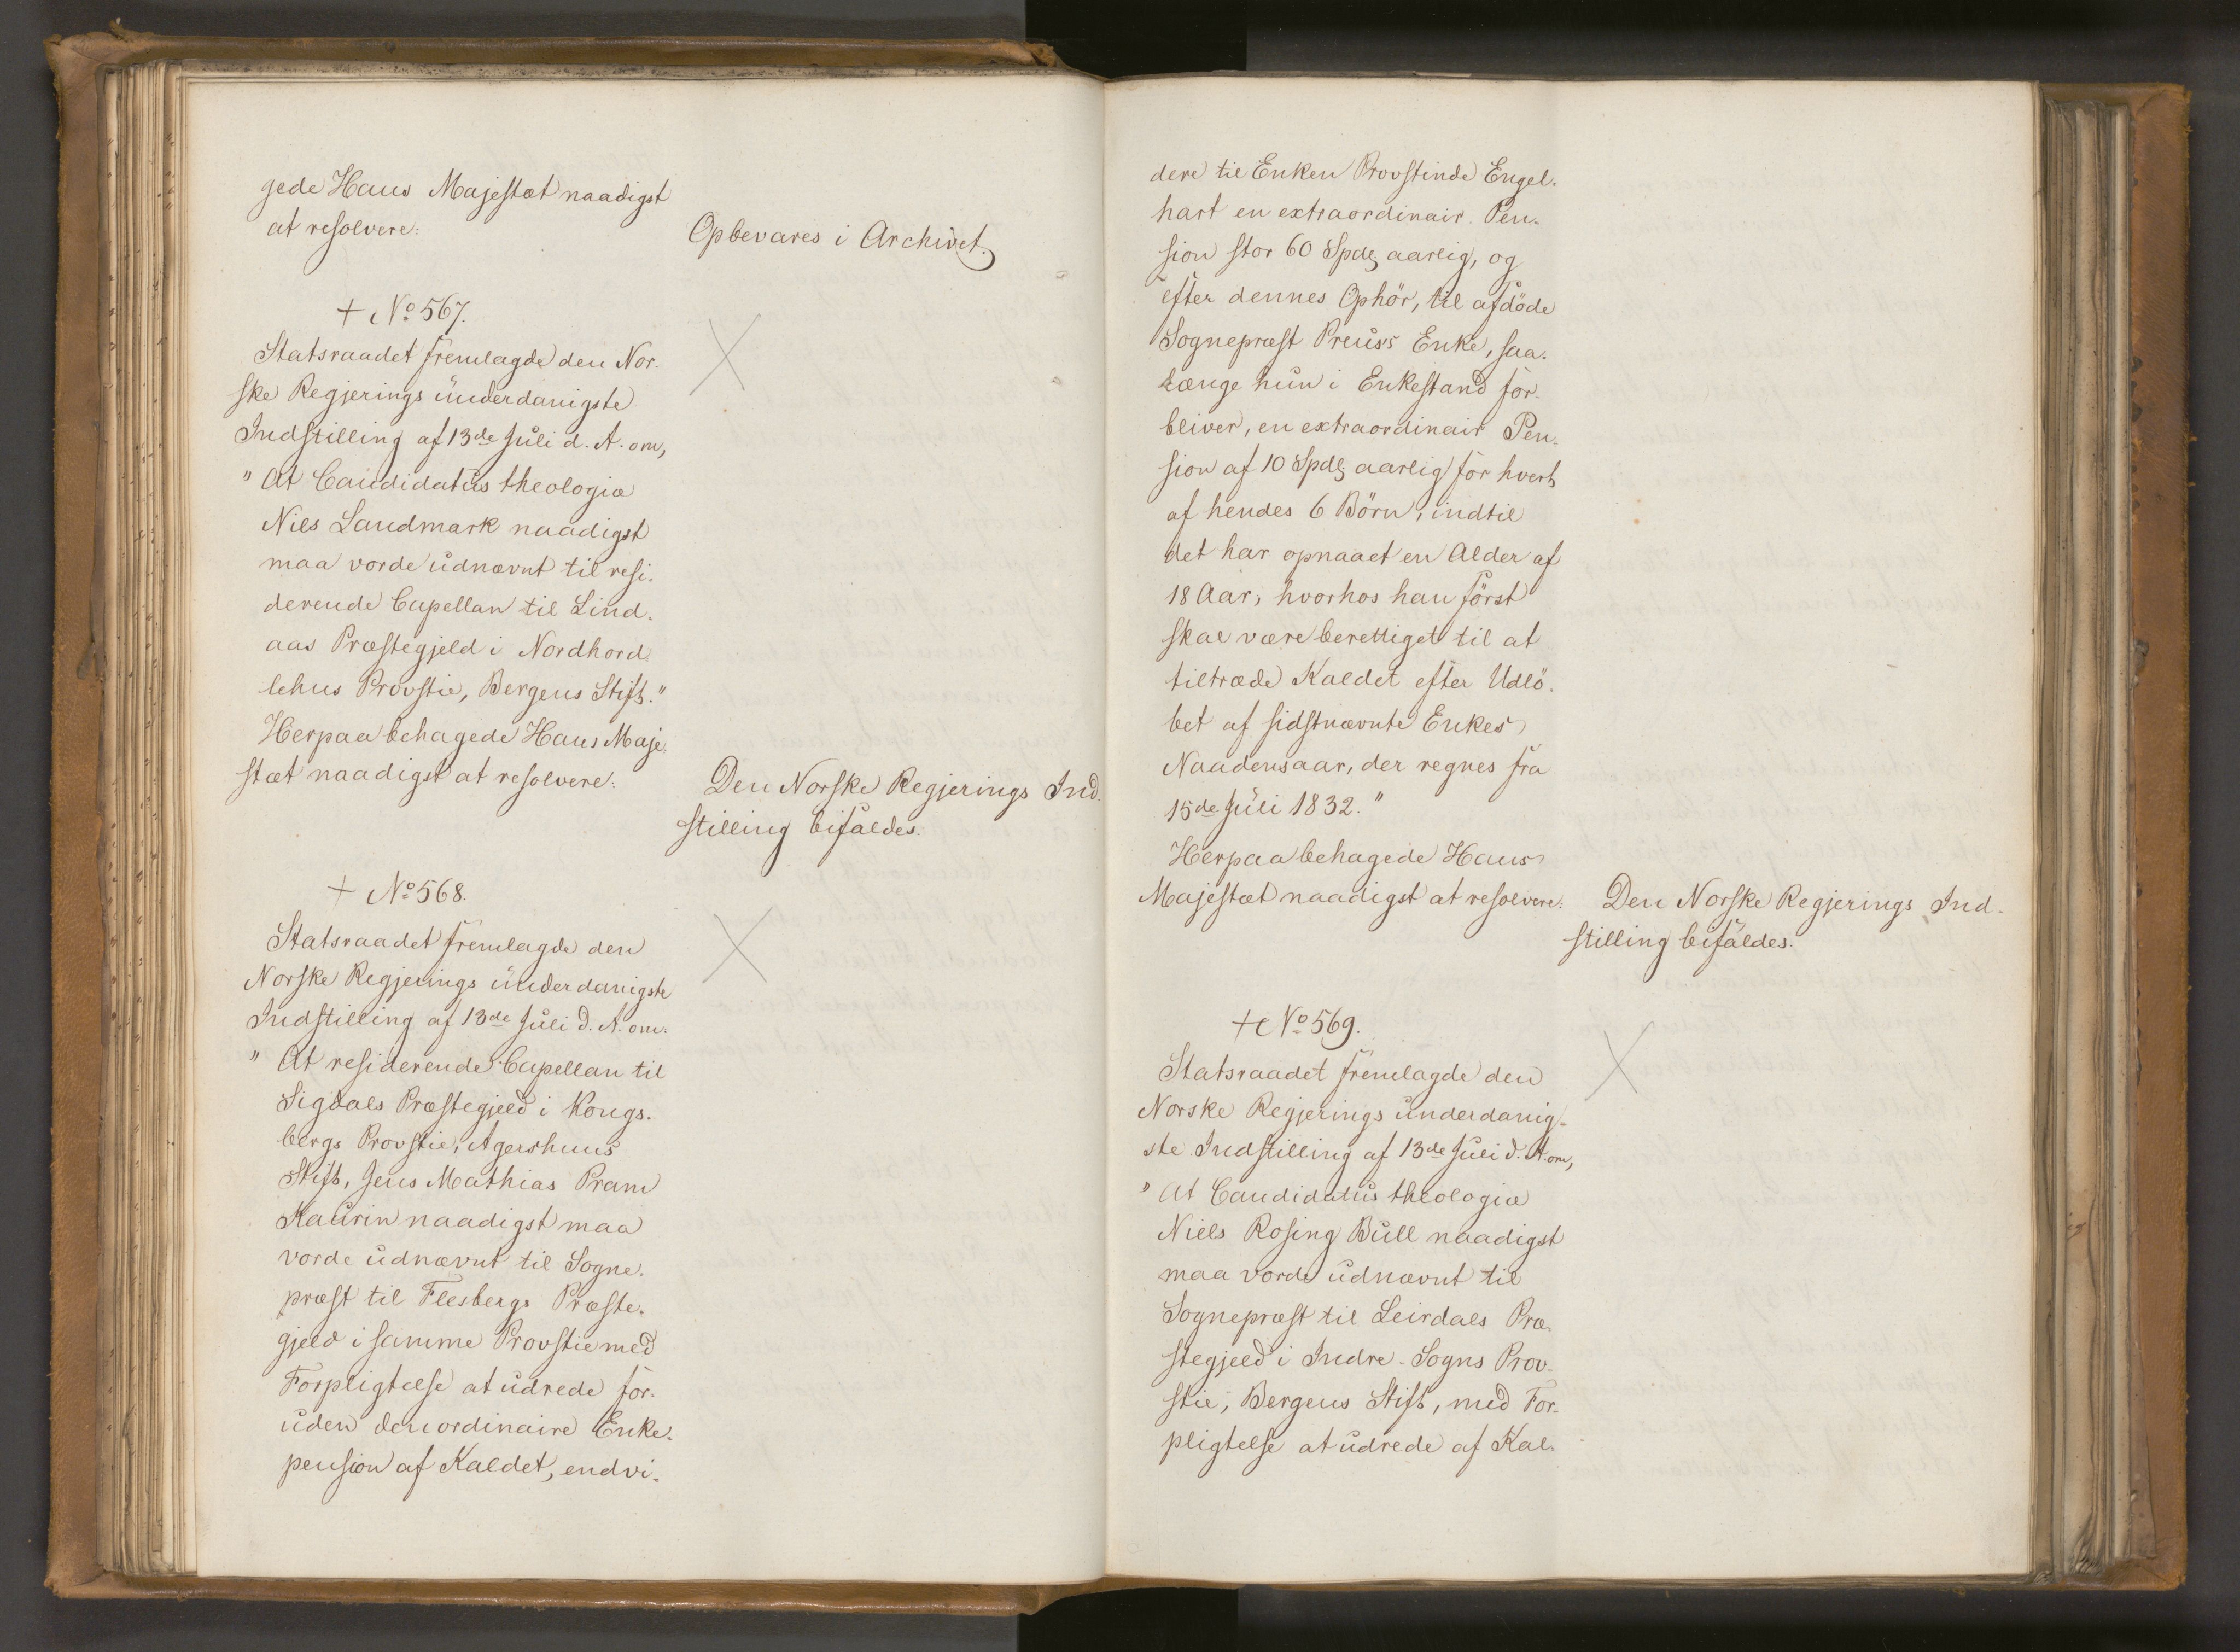 gede Hans Majestæt naadigst
at resolvere:
Opbevares i Archivet.
+ No 567.
Statsraadet fremlagde den Nor-
ske Regjerings underdanigste
Indstilling af 13de Juli d. A. om,
" At Candidatus theologiæ
Niels Landmark naadigst
maa vorde udnævnt til resi-
derende Capellan til Lind-
aas Præstegjeld i Nordhord-
lehns Provstie, Bergens Stift."
Herpaa behagede Hans Maje-
stæt naadigst at resolvere:
Den Norske Regjerings Ind-
stilling bifaldes.
+ No 568.
Statsraadet fremlagde den
Norske Regjerings underdanigste
Indstilling af 13de Juli d. A. om.
" At residerende Capellan til
Sigdals Præstegjeld i Kongs-
bergs Provstie, Agershuus
Stift, Jens Mathias Pram
Kaurin naadigst maa
vorde udnævnt til Sogne-
præst til Flesbergs Præste-
gjeld i samme Provstie med
Forpligtelse at udrede for-
uden den ordinaire Enke-
pension af Kaldet, endvi-
dere til Enken Provstinde Engel-
hart en extraordinair Pen-
sion stor 60 Spd aarlig, og
efter dennes Ophör, til afdöde
Sognepræst Preuss Enke, saa-
længe hun i Enkestand for-
bliver, en extraordinair Pen-
sion af 10 Spd aarlig for hvert
af hendes 6 Börn, indtil
det har opnaaet en Alder af
18 Aar, hvorhos han först
skal være berettiget til at
tiltræde Kaldet efter Udlö-
bet af sidstnævnte Enkes
Naadensaar, der regnes fra
15de Juli 1832."
Herpaa behagede Hans
Majestæt naadigst at resolvere:
Den Norske Regjerings Ind-
stilling bifaldes.
+ No 569.
Statsraadet fremlagde den
Norske Regjerings underdanig-
ste Indstilling af 13de Juli d. A. om,
" At Candidatus theologiæ
Niels Rosing Bull naadigst
maa vorde udnævnt til
Sognepræst til Leirdals Præ-
stegjeld i Indre-Sogns Prov-
stie, Bergens Stift, med For-
pligtelse at udrede af Kal-